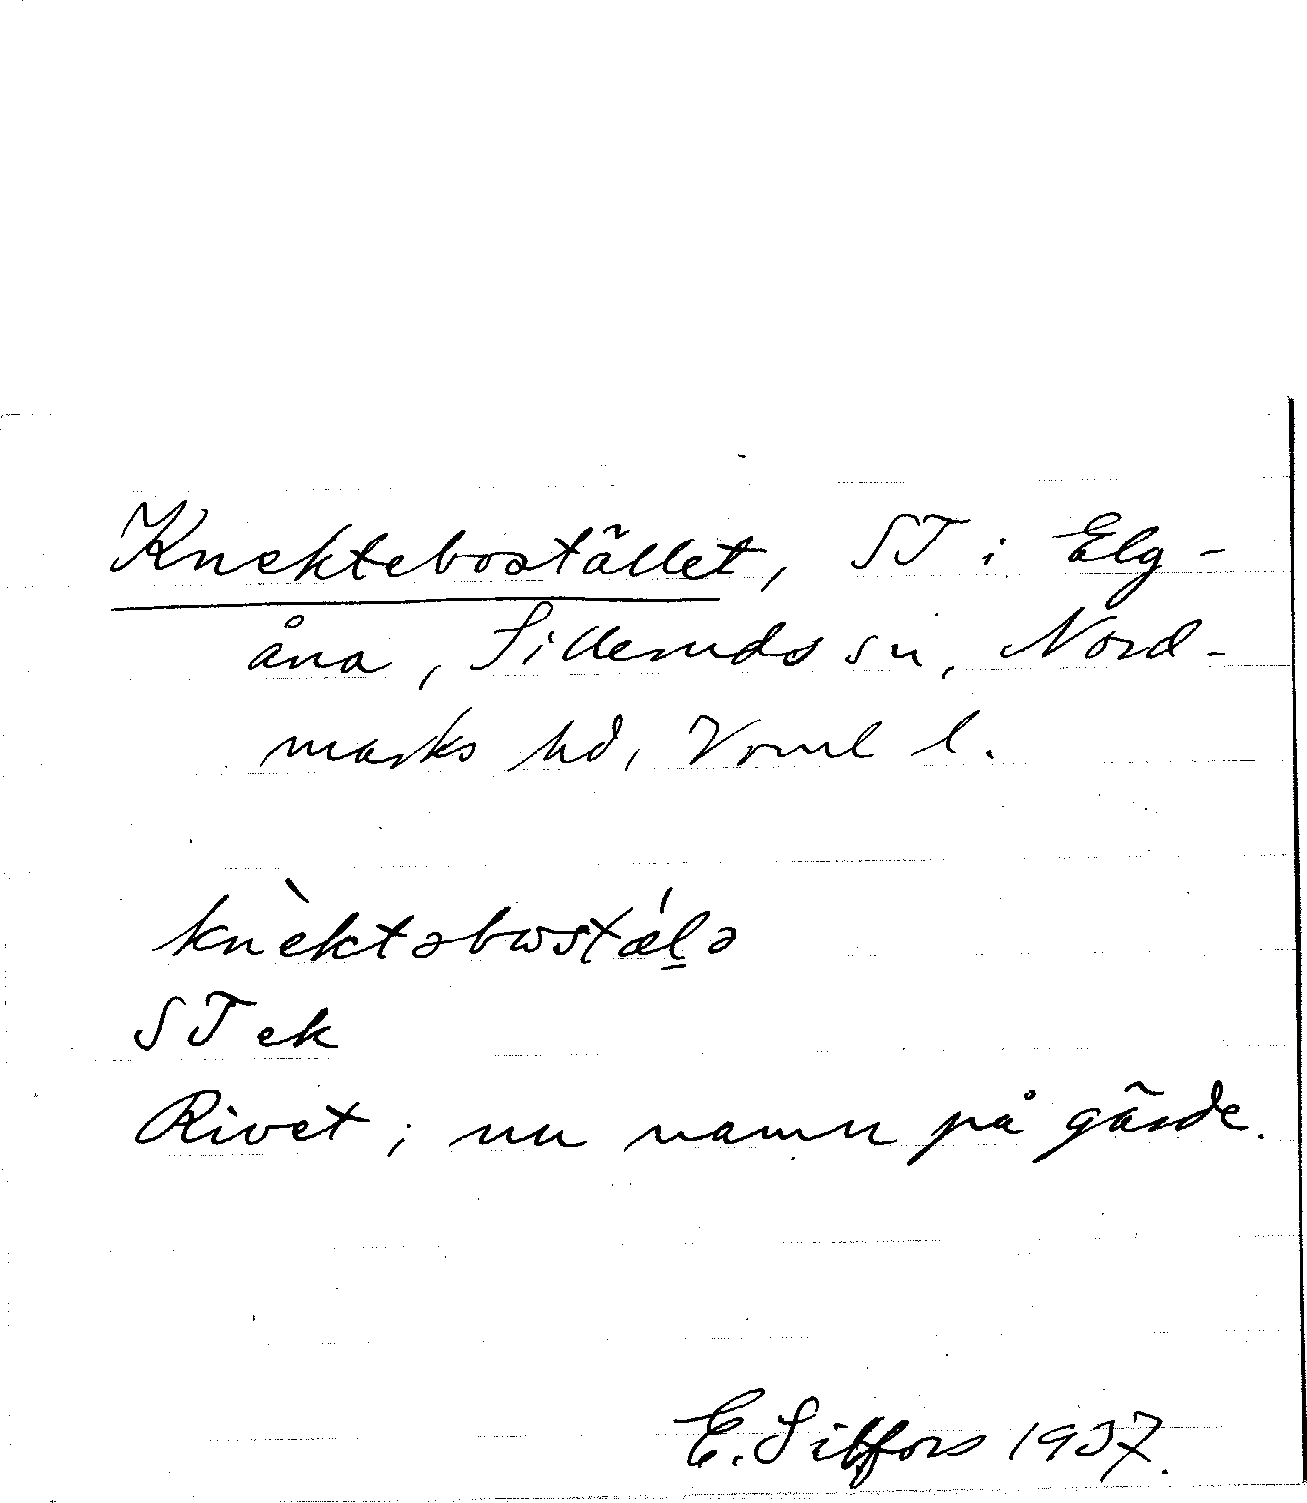 Knektebostället, ST i Elg-
åna, Silleruds sn, Nord-
marks hd, Vrml l.
knèktəbωstǽl̲ə
ST ek
Rivet; nu namn på gärde.
E. Silfors 1937.